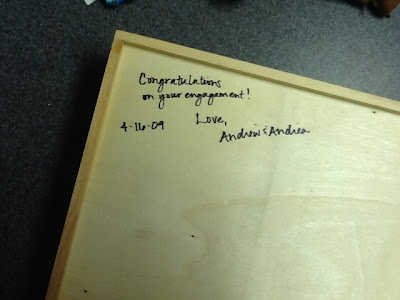 Congratulations
on your engagement!
4-16-09 Love,
Andrew & Andrea